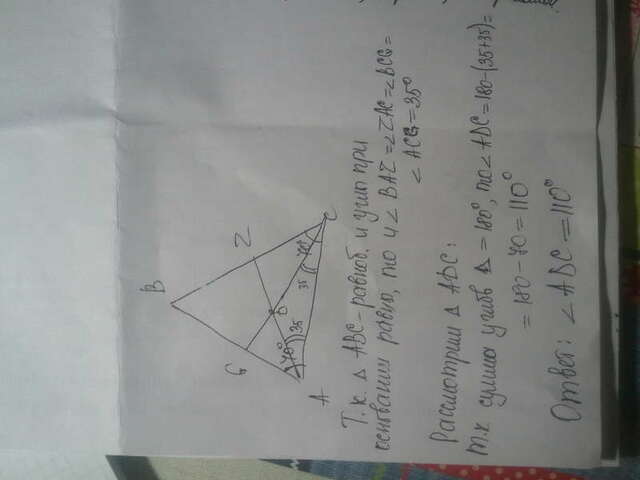 B
G
Z
70°
35
35
70°
A
C
Т.к. Δ ABC - равноб. и углы при
основании равно, то и ∠ BAZ = ∠ZAC = ∠BCG =
∠ ACG = 35°
Рассмотрим Δ ADC:
т.к сумма углов Δ = 180°, то ∠ ADC = 180-(35+35)=
= 180 - 70 = 110°
Ответ: ∠ ABC = 110°